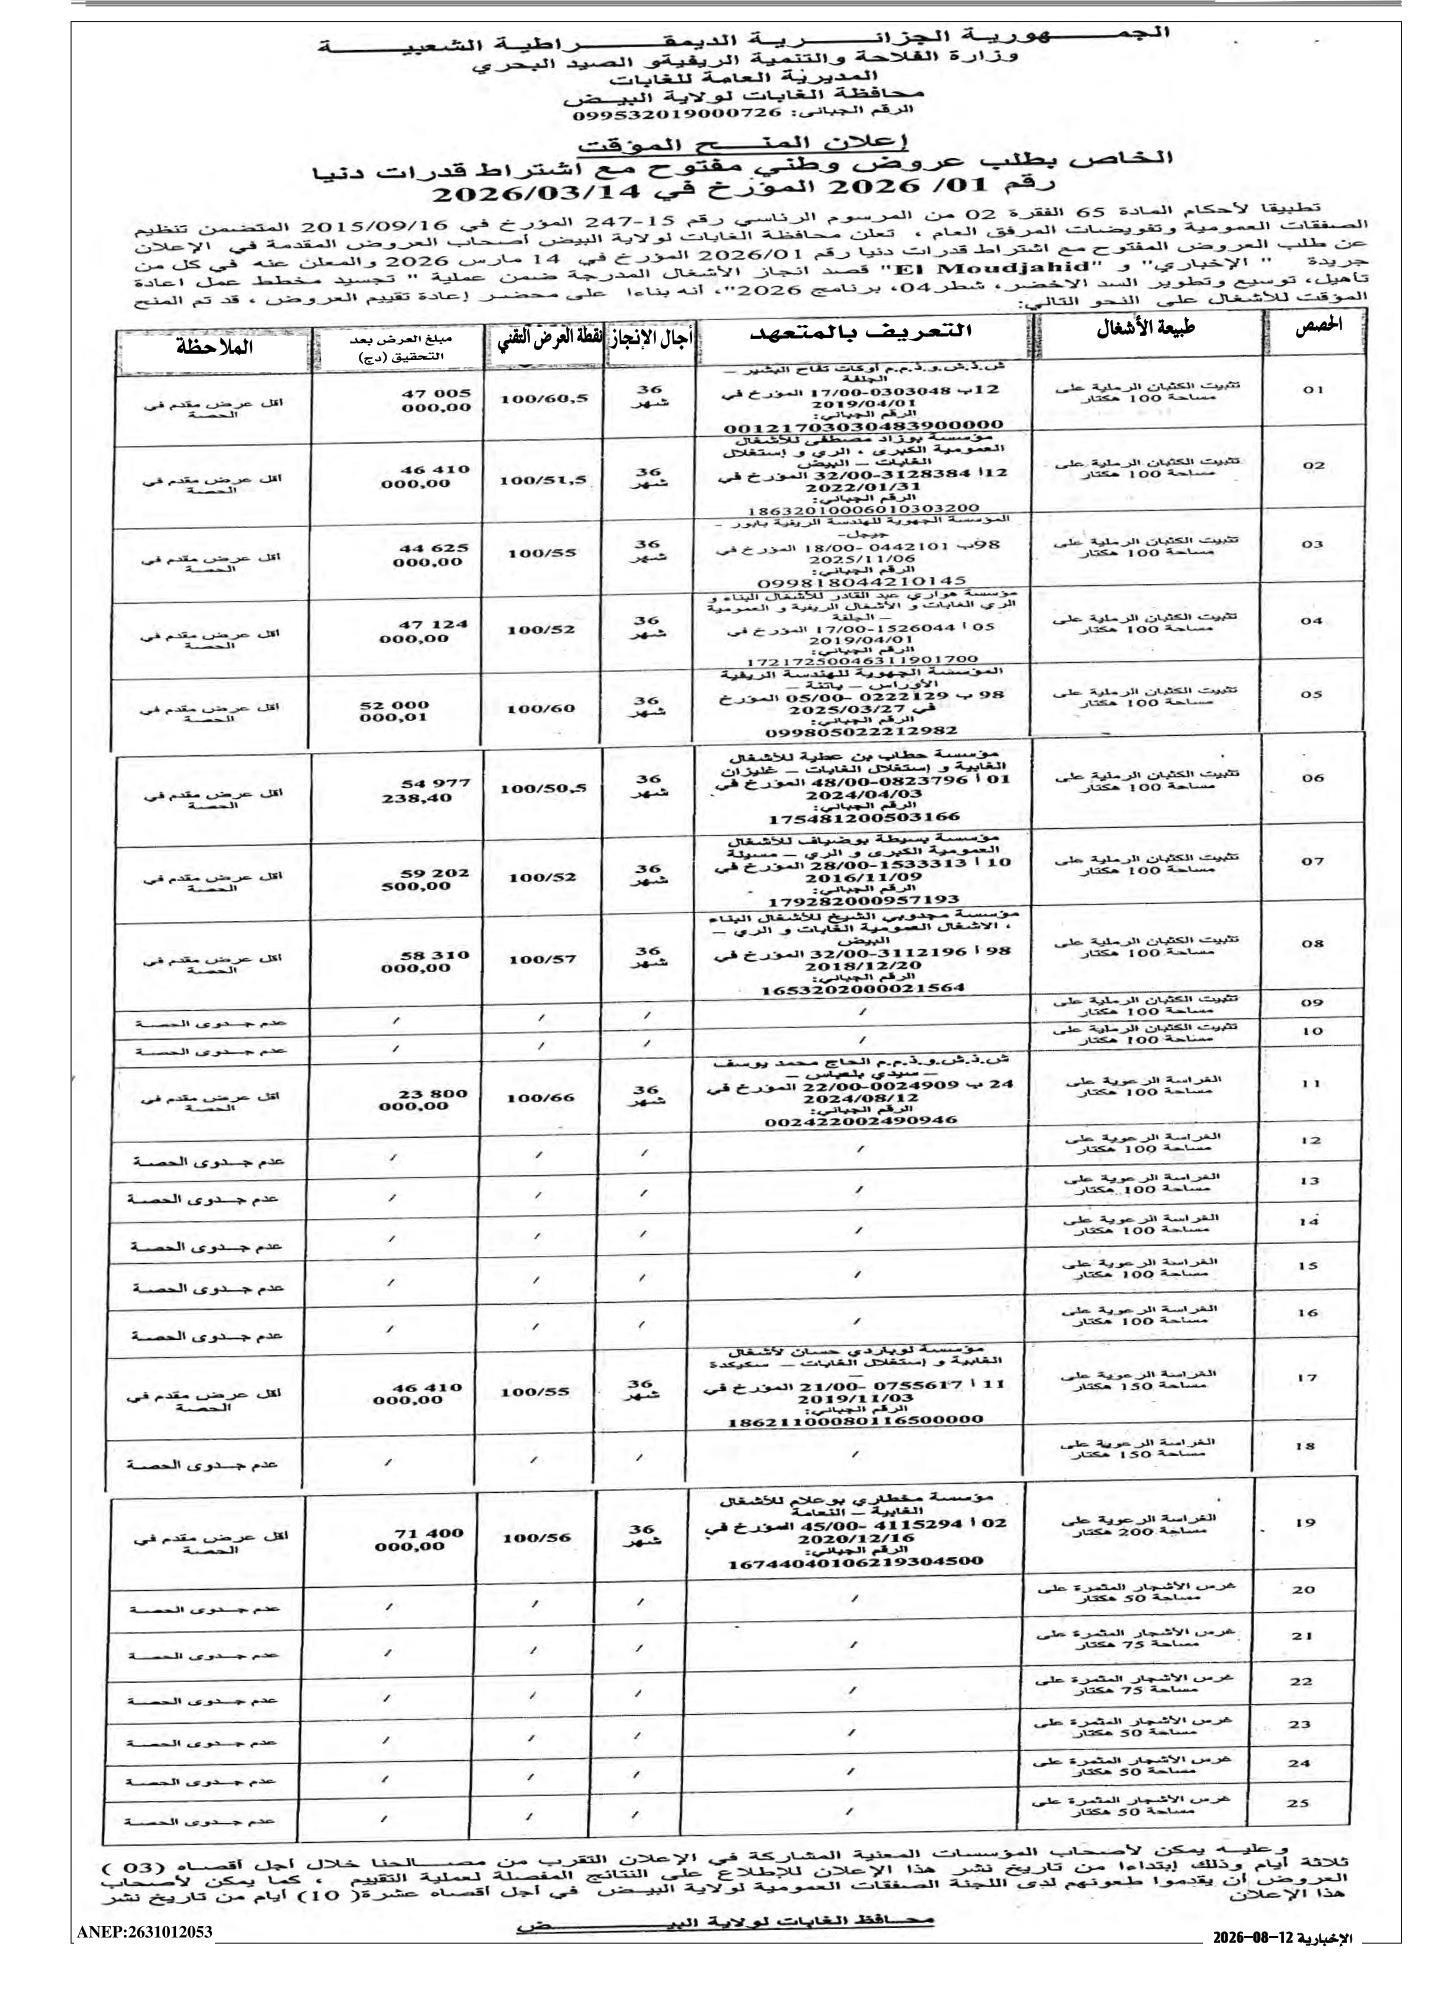 الجمـــهورية الجزائـــرية الديمقـــراطية الشعبيـــة
وزارة الفلاحة والتنمية الريفيةو الصيد البحري
المديرية العامة للغابات
محافظة الغابات لولاية البيــض
الرقم الجبائي: 099532019000726
إعلان المنـــح المؤقت
الخاص بطلب عروض وطني مفتوح مع اشتراط قدرات دنيا
رقم 01/ 2026 المؤرخ في 2026/03/14
تطبيقا لأحكام المادة 65 الفقرة 02 من المرسوم الرئاسي رقم 15-247 المؤرخ في 2015/09/16 المتضمن تنظيم
الصفقات العمومية وتفويضات المرفق العام ، تعلن محافظة الغابات لولاية البيض أصحاب العروض المقدمة في الإعلان
عن طلب العروض المفتوح مع اشتراط قدرات دنيا رقم 2026/01 المؤرخ في 14 مارس 2026 والمعلن عنه في كل من
جريدة " الإخباري" و "El Moudjahid" قصد انجاز الأشغال المدرجة ضمن عملية " تجسيد مخطط عمل اعادة
تأهيل، توسيع وتطوير السد الاخضر، شطر04، برنامج 2026"، أنه بناءا على محضر إعادة تقييم العروض ، قد تم المنح
المؤقت للأشغال على النحو التالي:
الحصص | طبيعة الأشغال | التعريف بالمتعهد | أجال الإنجاز | نقطة العرض التقني | مبلغ العرض بعد التحقيق (دج) | الملاحظة
01 | تثبيت الكثبان الرملية على مساحة 100 هكتار | ش.ذ.ش.و.ذ.م.م أوكات نفاح البشير – الجلفة 12ب 0303048-17/00 المؤرخ في 2019/04/01 الرقم الجبائي: 00121703030483900000 | 36 شهر | 100/60,5 | 47 005 000,00 | اقل عرض مقدم في الحصة
02 | تثبيت الكثبان الرملية على مساحة 100 هكتار | مؤسسة بوزاد مصطفى للأشغال العمومية الكبرى ، الري و إستغلال الغابات – البيض 12أ 3128384-32/00 المؤرخ في 2022/01/31 الرقم الجبائي: 18632010006010303200 | 36 شهر | 100/51,5 | 46 410 000,00 | اقل عرض مقدم في الحصة
03 | تثبيت الكثبان الرملية على مساحة 100 هكتار | المؤسسة الجهوية للهندسة الريفية بابور – جيجل- 98ب 0442101 -18/00 المؤرخ في 2025/11/06 الرقم الجبائي: 099818044210145 | 36 شهر | 100/55 | 44 625 000,00 | اقل عرض مقدم في الحصة
04 | تثبيت الكثبان الرملية على مساحة 100 هكتار | مؤسسة هواري عبد القادر للأشغال البناء و الري الغابات و الأشغال الريفية و العمومية – الجلفة 05 أ 1526044-17/00 المؤرخ في 2019/04/01 الرقم الجبائي: 17217250046311901700 | 36 شهر | 100/52 | 47 124 000,00 | اقل عرض مقدم في الحصة
05 | تثبيت الكثبان الرملية على مساحة 100 هكتار | المؤسسة الجهوية للهندسة الريفية الأوراس – باتنة – 98 ب 0222129 -05/00 المؤرخ في 2025/03/27 الرقم الجبائي: 099805022212982 | 36 شهر | 100/60 | 52 000 000,01 | اقل عرض مقدم في الحصة
06 | تثبيت الكثبان الرملية على مساحة 100 هكتار | مؤسسة حطاب بن عطية للأشغال الغابية و إستغلال الغابات – غليزان 01 أ 0823796-48/00 المؤرخ في 2024/04/03 الرقم الجبائي: 175481200503166 | 36 شهر | 100/50,5 | 54 977 238,40 | اقل عرض مقدم في الحصة
07 | تثبيت الكثبان الرملية على مساحة 100 هكتار | مؤسسة بسيطة بوضياف للأشغال العمومية الكبرى و الري – مسيلة 10 أ 1533313-28/00 المؤرخ في 2016/11/09 الرقم الجبائي: 179282000957193 | 36 شهر | 100/52 | 59 202 500,00 | اقل عرض مقدم في الحصة
08 | تثبيت الكثبان الرملية على مساحة 100 هكتار | مؤسسة مجدوبي الشيخ للأشغال البناء ، الاشغال العمومية الغابات و الري – البيض 98 أ 3112196-32/00 المؤرخ في 2018/12/20 الرقم الجبائي: 1653202000021564 | 36 شهر | 100/57 | 58 310 000,00 | اقل عرض مقدم في الحصة
09 | تثبيت الكثبان الرملية على مساحة 100 هكتار | / | / | / | / | عدم جـدوى الحصة
10 | تثبيت الكثبان الرملية على مساحة 100 هكتار | / | / | / | / | عدم جـدوى الحصة
11 | الغراسة الرعوية على مساحة 100 هكتار | ش.ذ.ش.و.ذ.م.م الحاج محمد يوسف – سيدي بلعباس – 24 ب 0024909-22/00 المؤرخ في 2024/08/12 الرقم الجبائي: 002422002490946 | 36 شهر | 100/66 | 23 800 000,00 | اقل عرض مقدم في الحصة
12 | الغراسة الرعوية على مساحة 100 هكتار | / | / | / | / | عدم جـدوى الحصة
13 | الغراسة الرعوية على مساحة 100 هكتار | / | / | / | / | عدم جـدوى الحصة
14 | الغراسة الرعوية على مساحة 100 هكتار | / | / | / | / | عدم جـدوى الحصة
15 | الغراسة الرعوية على مساحة 100 هكتار | / | / | / | / | عدم جـدوى الحصة
16 | الغراسة الرعوية على مساحة 100 هكتار | / | / | / | / | عدم جـدوى الحصة
17 | الغراسة الرعوية على مساحة 150 هكتار | مؤسسة لوباردي حسان لأشغال الغابية و إستغلال الغابات – سكيكدة – 11 أ 0755617 -21/00 المؤرخ في 2019/11/03 الرقم الجبائي: 18621100080116500000 | 36 شهر | 100/55 | 46 410 000,00 | اقل عرض مقدم في الحصة
18 | الغراسة الرعوية على مساحة 150 هكتار | / | / | / | / | عدم جـدوى الحصة
19 | الغراسة الرعوية على مساحة 200 هكتار | مؤسسة مخطاري بوعلام للأشغال الغابية – النعامة 02 أ 4115294 -45/00 المؤرخ في 2020/12/16 الرقم الجبائي: 16744040106219304500 | 36 شهر | 100/56 | 71 400 000,00 | اقل عرض مقدم في الحصة
20 | غرس الأشجار المثمرة على مساحة 50 هكتار | / | / | / | / | عدم جـدوى الحصة
21 | غرس الأشجار المثمرة على مساحة 75 هكتار | / | / | / | / | عدم جـدوى الحصة
22 | غرس الأشجار المثمرة على مساحة 75 هكتار | / | / | / | / | عدم جـدوى الحصة
23 | غرس الأشجار المثمرة على مساحة 50 هكتار | / | / | / | / | عدم جـدوى الحصة
24 | غرس الأشجار المثمرة على مساحة 50 هكتار | / | / | / | / | عدم جـدوى الحصة
25 | غرس الأشجار المثمرة على مساحة 50 هكتار | / | / | / | / | عدم جـدوى الحصة
وعليـه يمكن لأصحاب المؤسسات المعنية المشاركة في الإعلان التقرب من مصـالحنا خلال أجل أقصـاه (03 )
ثلاثة أيام وذلك إبتداءا من تاريخ نشر هذا الإعلان للإطلاع على النتائج المفصلة لعملية التقييم ، كما يمكن لأصحاب
العروض أن يقدموا طعونهم لدى اللجنة الصفقات العمومية لولاية البيـض في أجل أقصاه عشرة( 10) أيام من تاريخ نشر
هذا الإعلان
محـافظ الغابات لولاية البيـــض
ANEP:2631012053
الإخبارية 12-08-2026